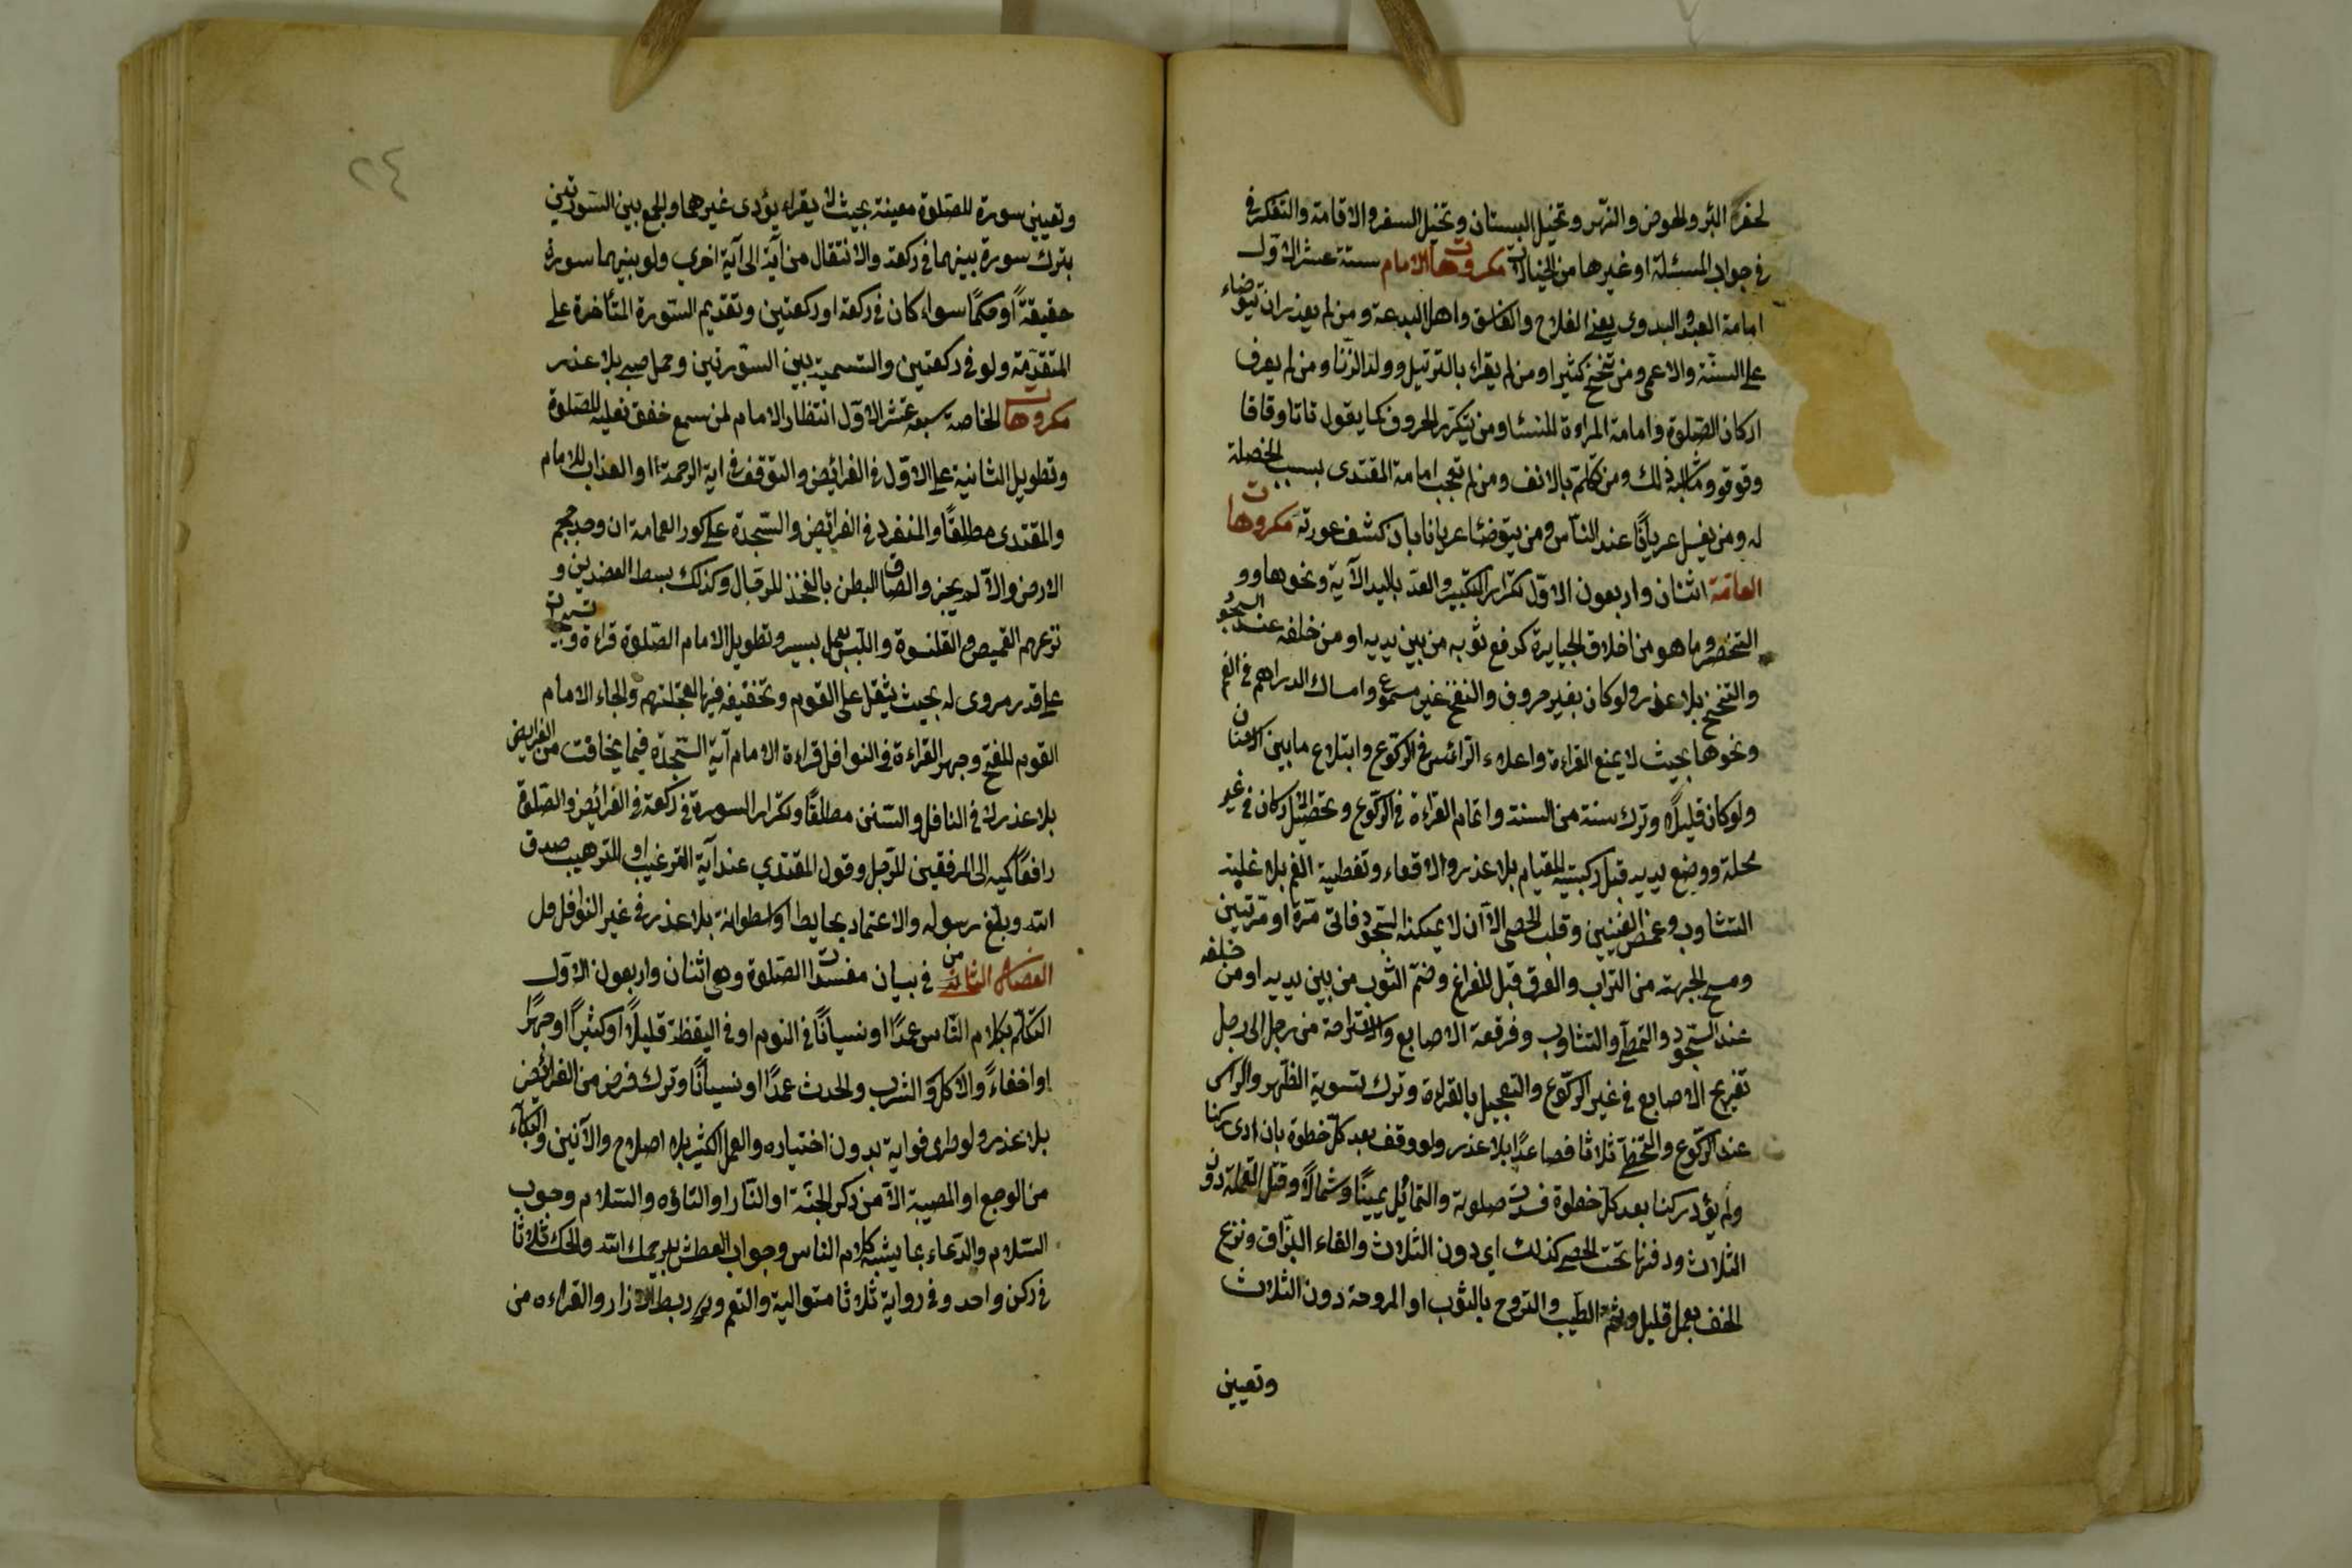 لحفر البئر والحوض والنهر وتخيل البستان وتخيل السفر والاقامة والتفكر في
في جواب المسئلة او غيرها من الخيالات مكروهات الامام ستة عشر الاول
امامة العبد والبدوي يعني الفلاح والفاسق واهل البدعة ومن لم يعذر ان يتوضاء
على السنة والاعمى ومن تنحنح كثيرا ومن لم يقراء بالترتيل وولد الزنا ومن لم يعرف
اركان الصلوة وامامة المراءة للنساء ومن يتكرر الحروف كما يقول تاتا وقاقا
وقوقو وما شابه ذلك ومن تكلم بالانف ومن لم تحب امامة المقتدى بسبب الخصلة
له ومن يغسل عريانا عند الناس ومن يتوضئا عريانا بان كشف عورته مكروهات
العامة اثنان واربعون الاول تكرار التكبير والعد باليد الآية ونحوها و
التخصر وما هو من اخلاق الجبابرة كرفع ثوبه من بين يديه او من خلفه عند السجود
والتنحنح بلا عذر ولو كان بغير حروف والنفخ غير مسموع وامساك الدراهم في الفم
ونحوها بحيث لا يمنع القراءة واعلاء الرائس في الركوع وابتلاع ما بين الاسنان
ولو كان قليلا وترك سنة من السنة واتمام القراءة في الركوع وتحصيل الاركان في غير
محلة ووضع يديه قبل ركبتيه للقيام بلا عذر والاقعاء وتغطية الفم بلا غلبة
التثاوب وغمض العينين وقلب الحصى الا ان لا يمكنه السجود فاتى مرة او مرتين
ومسح الجبهة من التراب والعرق قبل الفراغ وضم الثوب من بين يديه او من خلفه
عند السجود والتمطى والتثاوب وفرقعة الاصابع والاستراحة من رجل الى رجل
تفريج الاصابع في غير الركوع والتعجيل بالقراءة وترك تسوية الظهر والراس
عند الركوع والتخطى ثلاثا فصاعدا بلا عذر ولو وقف بعد كل خطوة بان ادى ركنا
ولم يؤد ركنا بعد كل خطوة فسدت صلوته والتمائل يمينا وشمالا وقتل القملة دون
الثلاث ودفنها تحت الحصى كذلك اي دون الثلاث والقاء البزاق ونزع
الخف بعمل قليل وشم الطيب والتروح بالثوب او المروحة دون الثلاث
وتعيين
٢٤
وتعيين سورة للصلوة معينة بحيث لا يقراء يؤدى غيرهما والجمع بين السورتين
بترك سورة بينهما في ركعة والانتقال من آية الى آية اخرى ولو بينهما سورة
حقيقةً او حكمًا سواء كان في ركعة او ركعتين وتقديم السورة المتأخرة على
المتقدمة ولو في ركعتين والتسمية بين السورتين وحمل صبي بلا عذر
مكروهات الخاصة سبعة عشر الاول انتظار الامام لمن سمع خفق نعليه للصلوة
وتطويل الثانية على الاول في الفرائض والتوقف في اية الرحمة او العذاب للامام
والمقتدى مطلقًا والمنفرد في الفرائض والسجدة على كور العمامة ان وجد حجم
الارض والا لم يجز والصاق البطن بالفخذ للرجال وكذلك بسط العضدين و
نزعهم القميص والقلنسوة واللبس بعمل يسير وتطويل الامام الصلوة قراءة وتسبيحات
على قدر مروى له بحيث يثقل على القوم وتخفيفه فيها لعجلتهم والجاء الامام
القوم للفتح وجهر القراءة في النوافل قراءة الامام آية السجدة فيما يخافت من الفرائض
بلا عذر لا في النافل والسنن مطلقًا وتكرار السورة في ركعة في الفرائض والصلوة
رافعًا كميه الى المرفقين للرجل وقول المقتدي عند آية الترغيب او الترهيب صدق
الله وبلغ رسوله والاعتماد بحايط او اسطوانة بلا عذر في غير النوافل
الفصل الثامن في بيان مفسدات الصلوة وهي اثنان واربعون الاول
التكلم بكلام الناس عمدًا او نسيانًا في النوم او في اليقظة قليلًا او كثيرًا او جهرًا
او اخفاءً والاكل والشرب والحدث عمدًا او نسيانًا وترك فرض من الفرائض
بلا عذر ولو طرى فواية بدون اختياره والعمل الكثير بلا اصلاح والآنين والبكاء
من الوجع او المصيبة الا من ذكر الجنة او النار او التاؤه والسلام وجوب
السلام والدعاء بما يشبه كلام الناس وجواب العطش بيرحمك الله والحك ثلاثا
في ركن واحد وفي رواية ثلاثا متوالية والتعم وبى ربط الازار والقراءه من